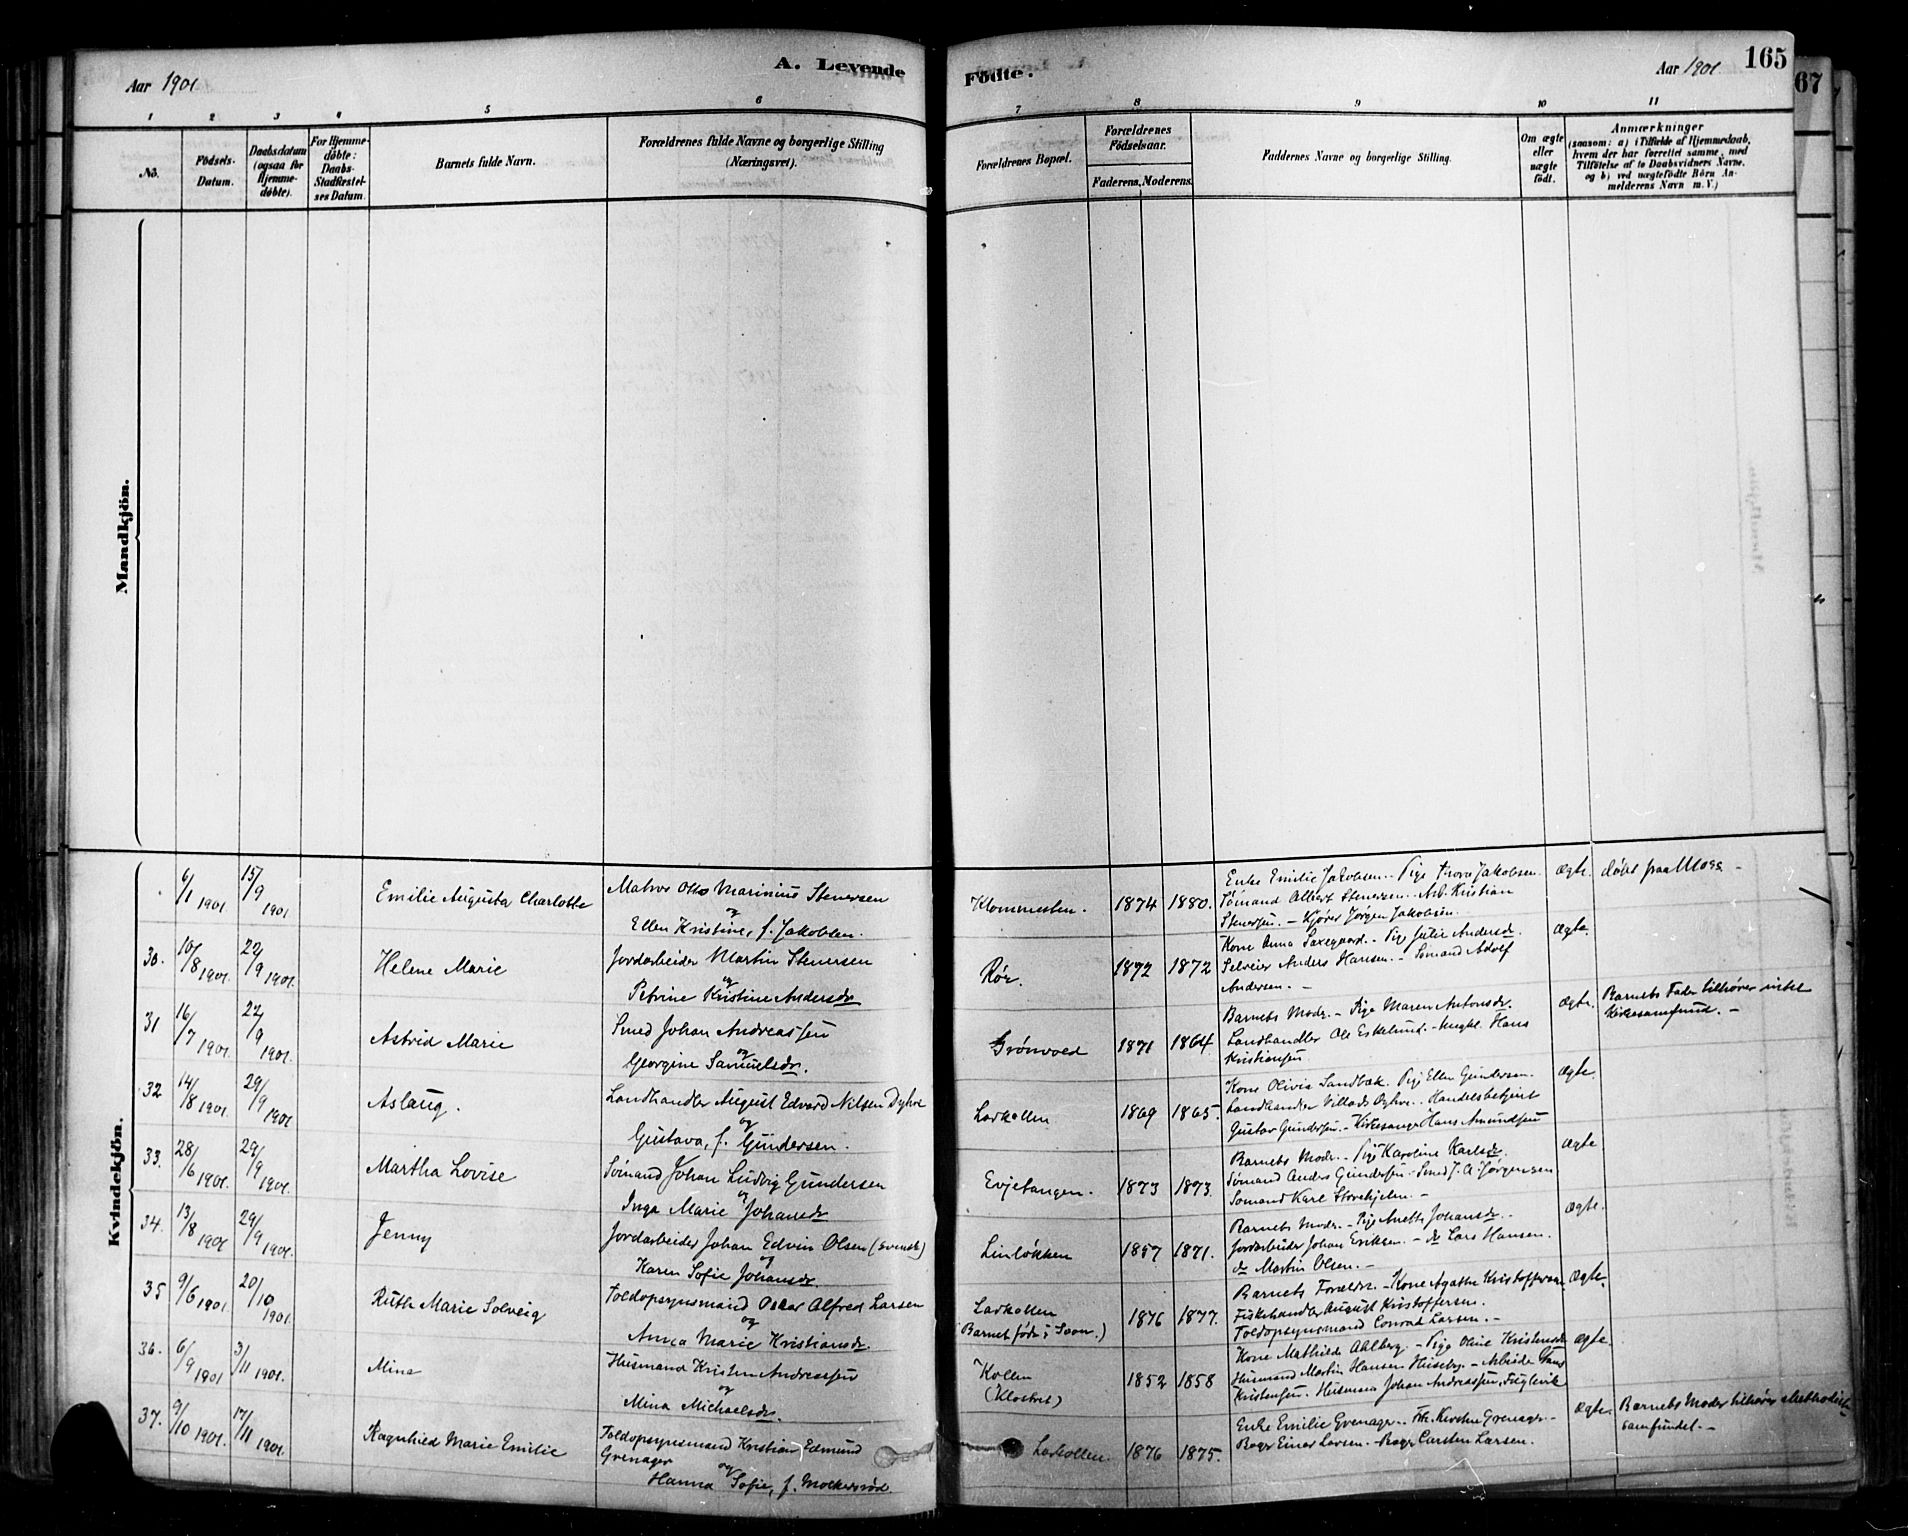 Aar 1901
A. Levende
Födte.
Aar 1901
165
67
1 2 3 4 5 6 7 8 9 10 11
No.
Födsels-
Datum.
Daabsdatum
(ogsaa for
Hjemme-
döbte).
For Hjemme-
döbte:
Daabs-
Stadfæstel-
ses Datum.
Barnets fulde Navn.
Forældrenes fulde Navne og borgerlige Stilling
(Næringsvei).
Forældrenes Bopæl.
Forældrenes
Födselsaar.
Faderens. Moderens.
Faddernes Navne og borgerlige Stilling.
Om ægte
eller
uægte
född.
Anmærkninger
(saasom: a) i Tilfælde af Hjemmedaab,
hvem der har forrettet samme, med
Tilföielse af to Daabsvidners Navne,
og b) ved uægtefödte Börn An-
melderens Navn m. V.)
Mandkjön.
Kvindekjön.
6/1 1901. 15/9 1901. Emilie Augusta Charlotte
Matros Otto Marinius Stenersen
og
Ellen Kristine, f. Jakobsen.
Klommesten. 1874 1880.
Enke Emilie Jakobsen. - Pige Thova Jakobsen.
Sømand Albert Stenersen. Arb. Kristian
Stenersen. - Kjører Jørgen Jakobsen.
Ægte. døbt paa Moss -
30. 10/8 1901. 22/9 1901. Helene Marie
Jordarbeider Martin Stenersen
og
Petrine Kristine Andersdr
Rør. 1872 1872
Kone Anna Saxegaard. - Pige Julie Andersdr
Selveier Anders Hansen. - Sømand Adolf
Andersen. -
Ægte.
31 16/7 1901. 22/9 1901. Astrid Marie
Smed Johan Andreassen
og
Georgine Samuelsdr.
Grønvold 1871 1864.
Barnets Moder. - Pige Maren Antonsdr.
Landhandler Ole Eskelund. - Ungkl. Hans
Kristiansen
Ægte. Barnets Fader tilhører intet
Kirkesamfund. -
32 14/8 1901. 29/9 1901 Aslaug.
Landhandler August Edvard Nilsen Dyhre
og
Gustava, f. Gundersen.
Larkollen 1869 1865.
Kone Olivia Sandbæk. Pige Ellen Gundersen.
Landhandler Villads Dyhre. - Handelsbetjent
Gustav Gundersen. - Kirkesanger Hans Amundsen
Ægte.
33. 28/6 1901. 29/9 1901. Martha Lovise
Sømand Johan Ludvig Gundersen
og
Inga Marie Johansdr
Evjetangen. 1873 1873.
Barnets Moder. - Pige Karoline Karlsdr.
Sømand Anders Gundersen. - Smed J. A. Jørgensen
Sømand Karl Storehjelen. -
Ægte
34. 13/8 1901 29/9 1901. Jenny
Jordarbeider Johan Edvin Olsen (svensk)
og
Karen Sofie Johansdr.
Linløkken 1857 1871.
Barnets Moder. - Pige Anette Johansdr. -
Jordarbeider Johan Eriksen. - do Lars Hansen.
do Martin Olsen. -
Ægte.
35 9/6 1901. 20/10 1901. Ruth Marie Solveig
Toldopsynsmand Oscar Alfred Larsen
og
Anna Marie Kristiansdr.
Larkollen
(Barnet født i Soon.) 1876 1877.
Barnets Forældre. - Kone Agathe Kristoffersen
Fiskehandler August Kristoffersen.
Toldopsynsmand Conrad Larsen. -
Ægte.
36. 6/9 1901 3/11 1901. Mina
Husmand Kristen Andreassen
og
Mina Michaelsdr.
Kollen
(Klostret) 1852 1858
Kone Mathilde Ahlberg. - Pige Oline Kristensdr
Husmand Martin Hansen Huseby. - Arbeider Hans
Kristensen. Husmand Johan Andreassen, Fuglevik
Ægte.
37. 9/10 1901. 17/11 1901. Ragnhild Marie Emilie
Toldopsynsmand Kristian Edmund
Grenager
og
Hanna Sofie, f. Molkersrød.
Larkollen. 1876 1875.
Enke Emilie Grenager. - Frk. Kirsten Grenager. -
Bager Einar Larsen. - Bager Carsten Larsen.
Ægte. Barnets Moder tilhører Methodist-
samfundet. -